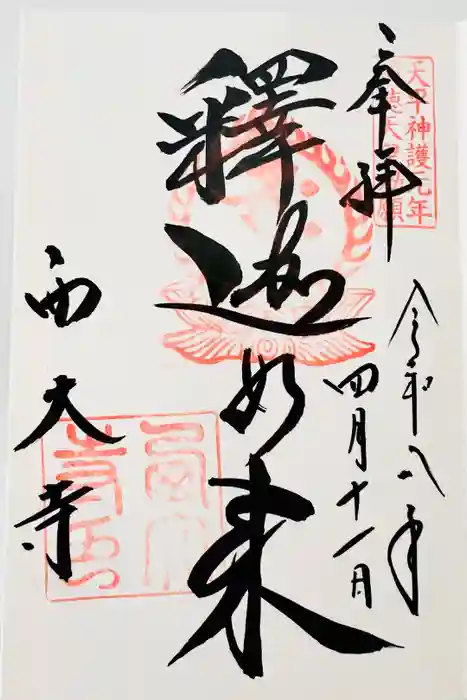 奉拝
天平神護元年
称徳天皇勅願
令和八年
四月十一日
釋迦如来
西大寺